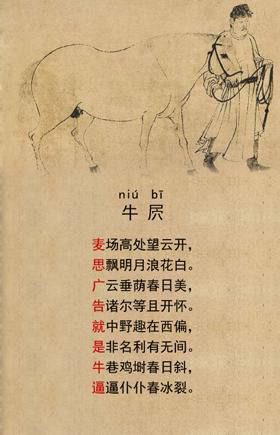 niú bī
牛屄
麦场高处望云开，
思飘明月浪花白。
广云垂荫春日美，
告诸尔等且开怀。
就中野趣在西偏，
是非名利有无间。
牛巷鸡埘春日斜，
逼逼仆仆春冰裂。